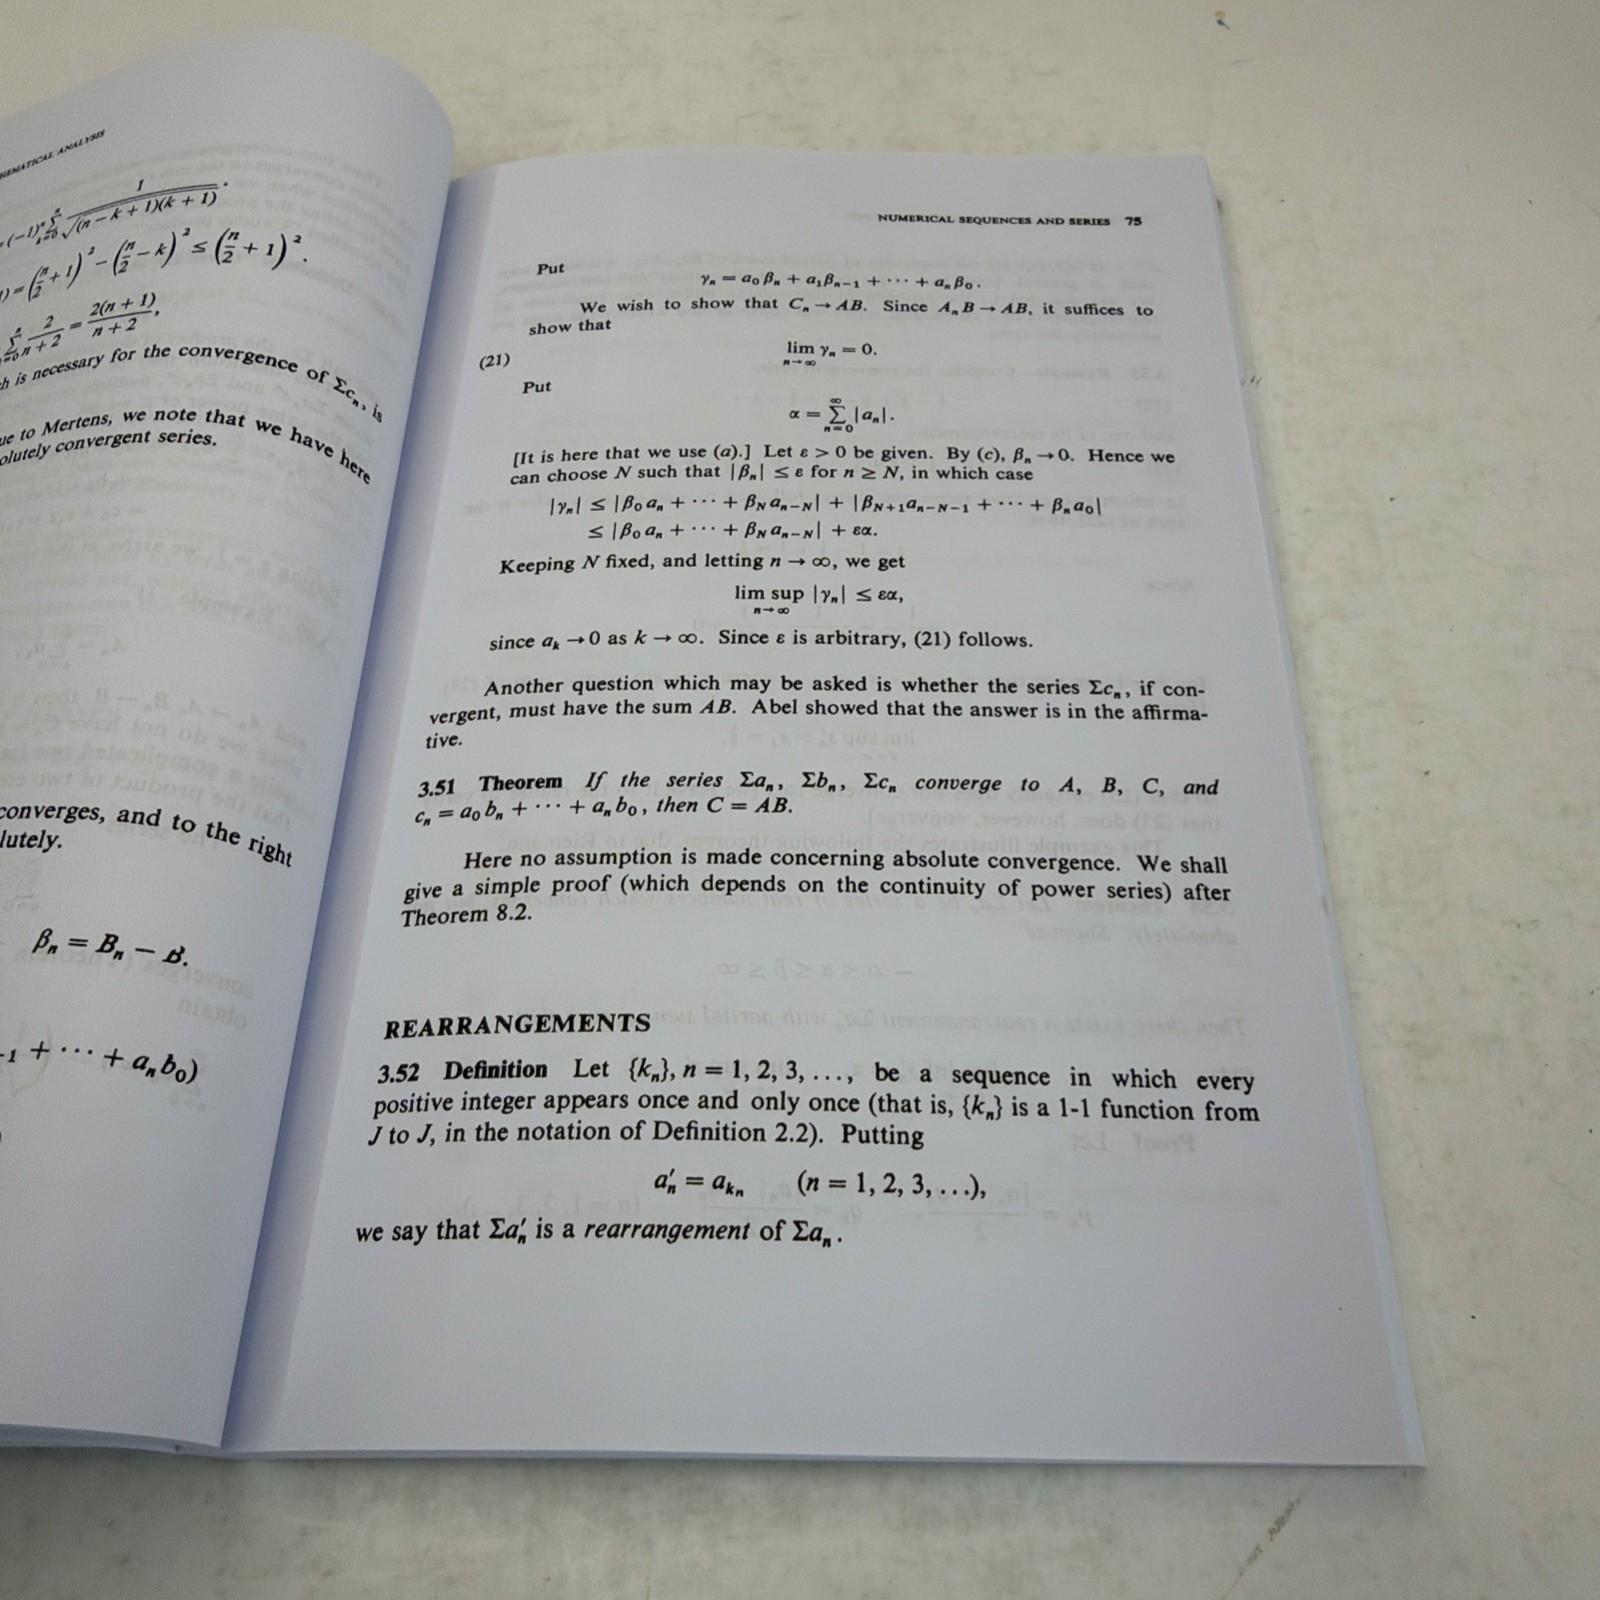 MATHEMATICAL ANALYSIS
(-1)^n Σ_{k=0}^n 1/√((n-k+1)(k+1)).
) = (n/2 + 1)² - (n/2 - k)² ≤ (n/2 + 1)².
Σ_{k=0}^n 2/(n+2) = 2(n+1)/(n+2),
is necessary for the convergence of Σcₙ, is
to Mertens, we note that we have here
convergent series.
converges, and to the right
βₙ = Bₙ − B.
+ ··· + aₙb₀)
NUMERICAL SEQUENCES AND SERIES 75
Put
γₙ = a₀βₙ + a₁βₙ₋₁ + ··· + aₙβ₀.
We wish to show that Cₙ → AB. Since AₙB → AB, it suffices to
show that
(21) lim_{n→∞} γₙ = 0.
Put
α = Σ_{n=0}^∞ |aₙ|.
[It is here that we use (a).] Let ε > 0 be given. By (c), βₙ → 0. Hence we
can choose N such that |βₙ| ≤ ε for n ≥ N, in which case
|γₙ| ≤ |β₀aₙ + ··· + β_N a_{n−N}| + |β_{N+1}a_{n−N−1} + ··· + βₙa₀|
≤ |β₀aₙ + ··· + β_N a_{n−N}| + εα.
Keeping N fixed, and letting n → ∞, we get
lim sup_{n→∞} |γₙ| ≤ εα,
since aₖ → 0 as k → ∞. Since ε is arbitrary, (21) follows.
Another question which may be asked is whether the series Σcₙ, if con-
vergent, must have the sum AB. Abel showed that the answer is in the affirma-
tive.
3.51 Theorem If the series Σaₙ, Σbₙ, Σcₙ converge to A, B, C, and
cₙ = a₀bₙ + ··· + aₙb₀, then C = AB.
Here no assumption is made concerning absolute convergence. We shall
give a simple proof (which depends on the continuity of power series) after
Theorem 8.2.
REARRANGEMENTS
3.52 Definition Let {kₙ}, n = 1, 2, 3, ..., be a sequence in which every
positive integer appears once and only once (that is, {kₙ} is a 1-1 function from
J to J, in the notation of Definition 2.2). Putting
a′ₙ = a_{kₙ} (n = 1, 2, 3, ...),
we say that Σa′ₙ is a rearrangement of Σaₙ.